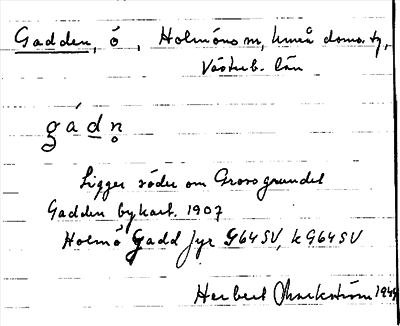 Gadden, ö, Holmöns sn, Umeå doms. tg,
Västerb. län
gádn̥
Ligger söder om Grossgrundet
Gadden bykart. 1907
Holmö Gadd fyr G64SV, kG64SV
Herbert Markström 1948